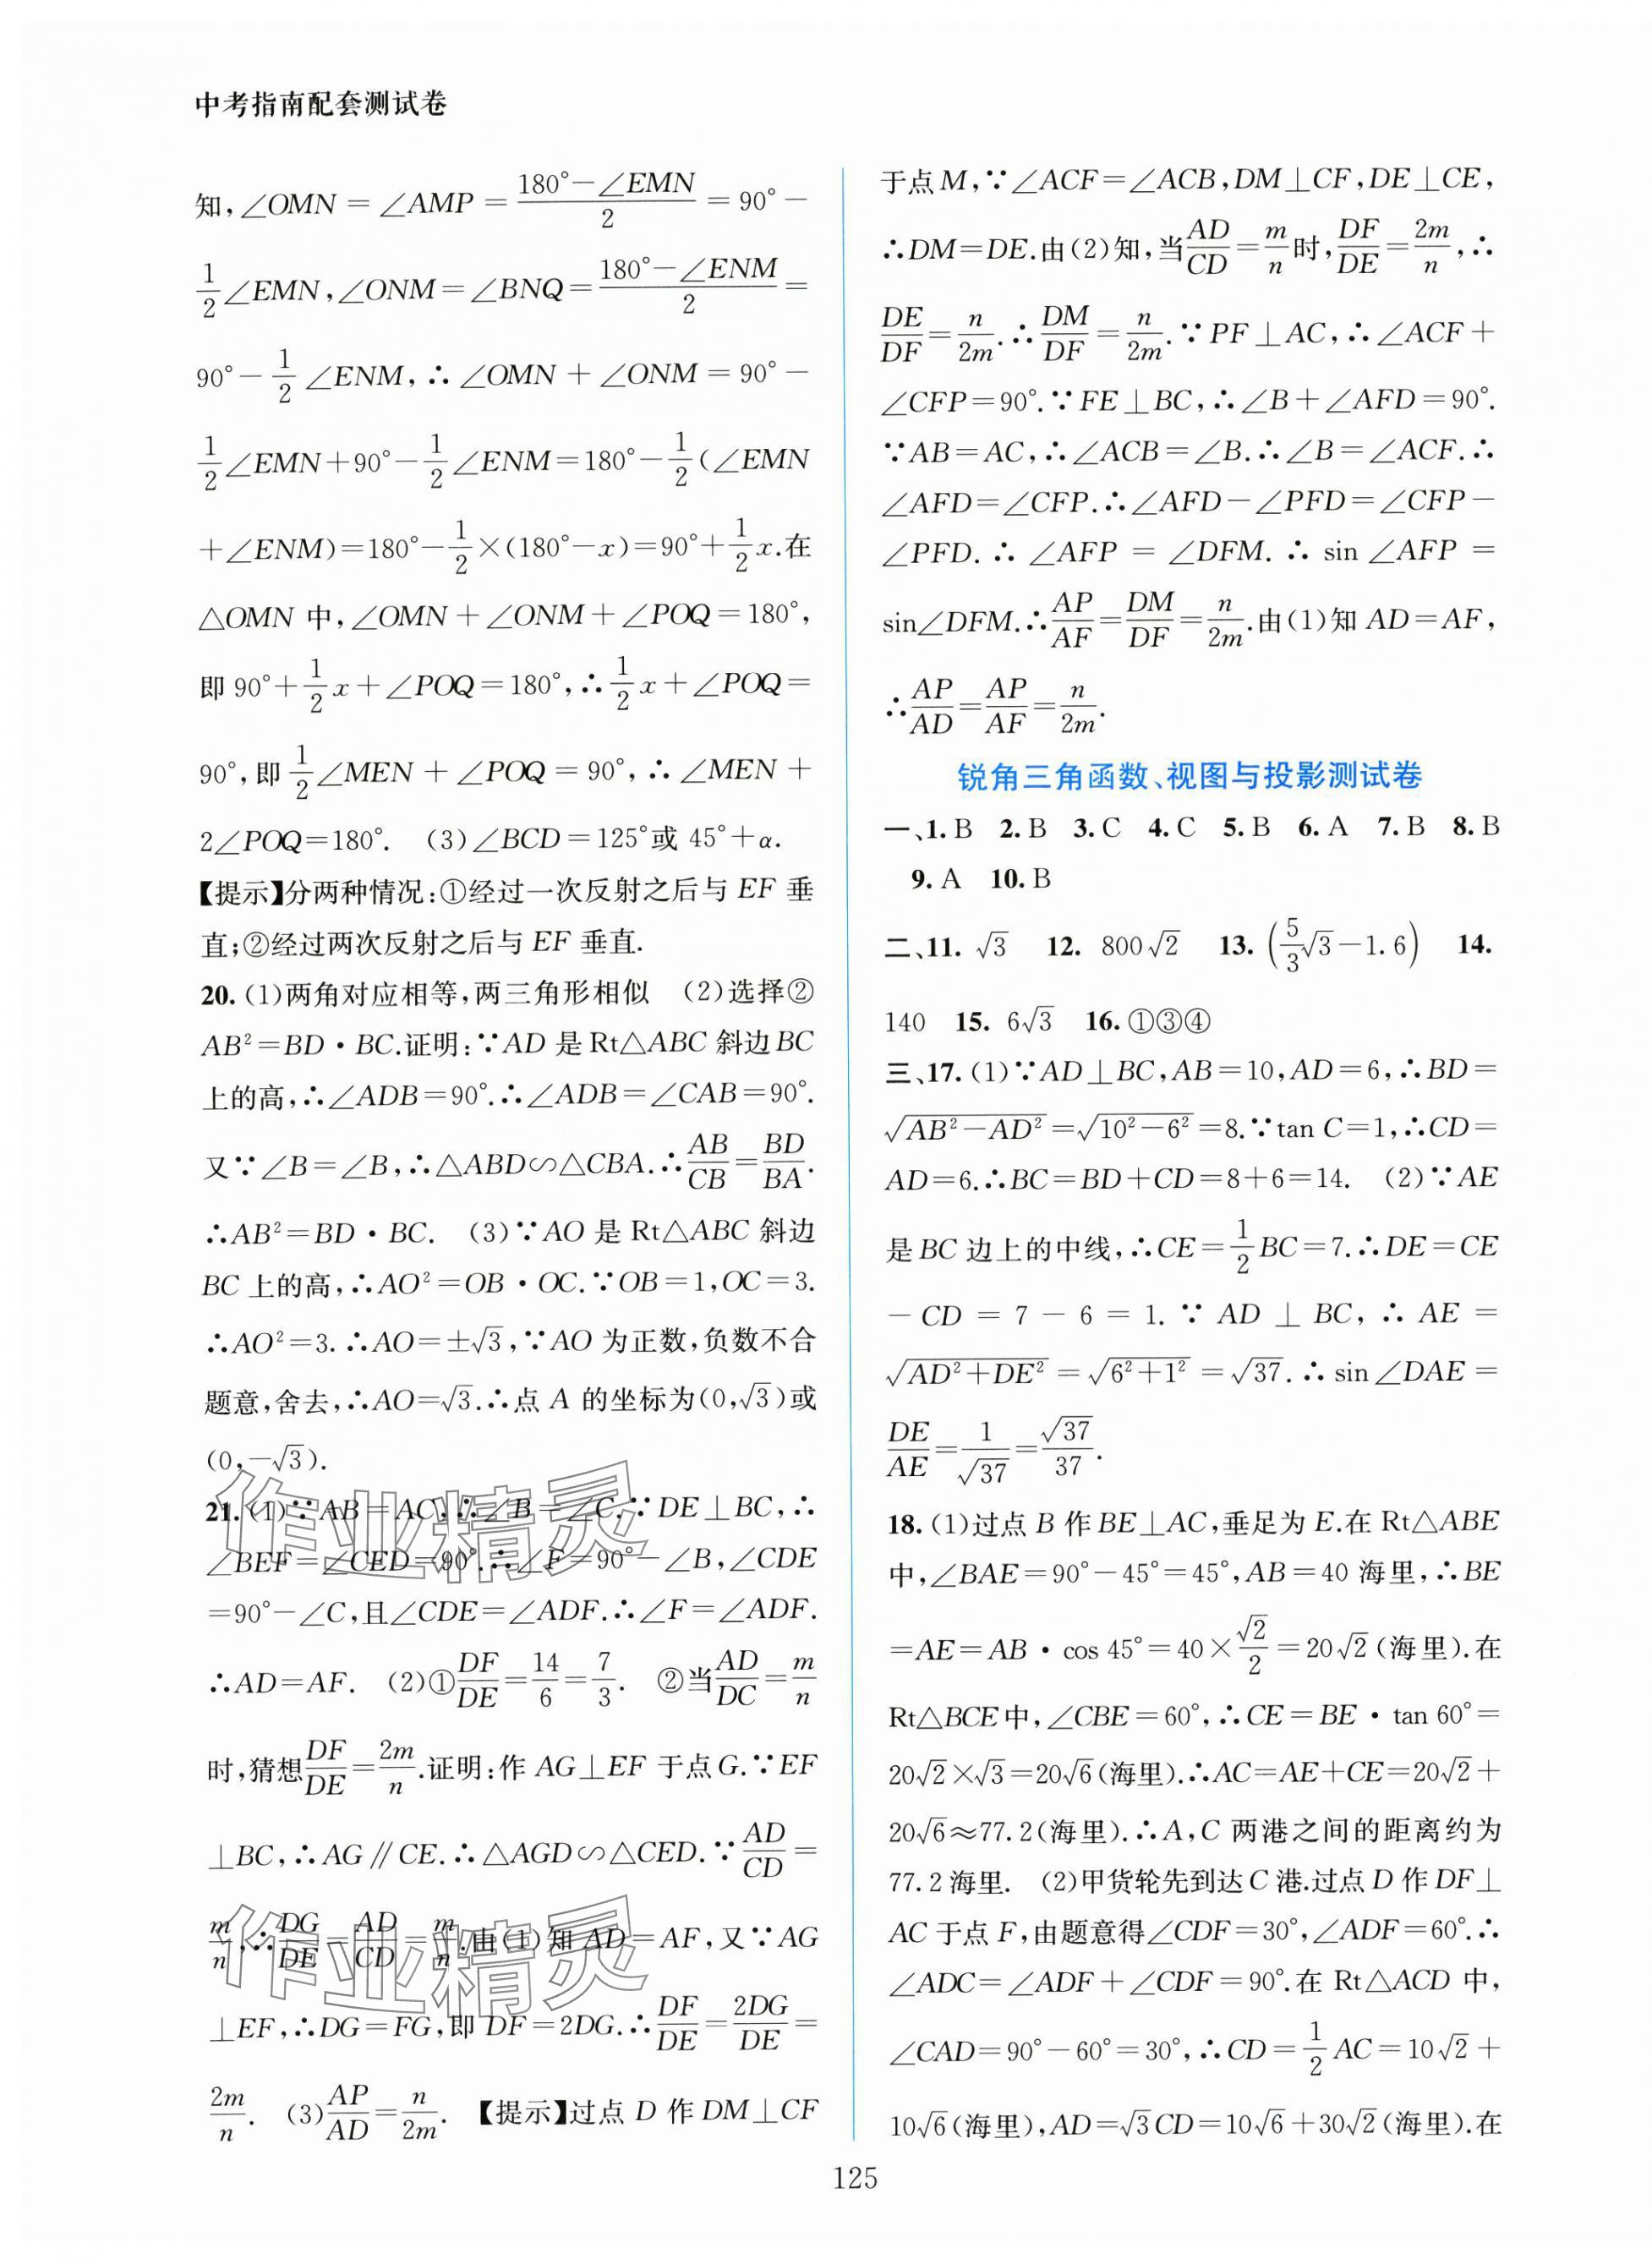 中考指南配套测试卷
知,∠OMN = ∠AMP = (180°-∠EMN)/2 = 90°-
1/2∠EMN,∠ONM=∠BNQ=(180°-∠ENM)/2=
90°-1/2∠ENM,∴∠OMN+∠ONM=90°-
1/2∠EMN+90°-1/2∠ENM=180°-1/2(∠EMN
+∠ENM)=180°-1/2×(180°-x)=90°+1/2x.在
△OMN 中,∠OMN+∠ONM+∠POQ=180°,
即 90°+1/2x+∠POQ=180°,∴1/2x+∠POQ=
90°,即1/2∠MEN+∠POQ=90°,∴∠MEN+
2∠POQ=180°. (3)∠BCD=125°或 45°+α.
【提示】分两种情况:①经过一次反射之后与 EF 垂
直;②经过两次反射之后与 EF 垂直.
20. (1)两角对应相等,两三角形相似 (2)选择②
AB²=BD·BC.证明:∵AD 是 Rt△ABC 斜边 BC
上的高,∴∠ADB=90°.∴∠ADB=∠CAB=90°.
又∵∠B=∠B,∴△ABD∽△CBA.∴AB/CB=BD/BA.
∴AB²=BD·BC. (3)∵AO 是 Rt△ABC 斜边
BC 上的高,∴AO²=OB·OC.∵OB=1,OC=3.
∴AO²=3.∴AO=±√3,∵AO 为正数,负数不合
题意,舍去,∴AO=√3.∴点 A 的坐标为(0,√3)或
(0,-√3).
21. (1)∵AB=AC,∴∠B=∠C.∵DE⊥BC,∴
∠BEF=∠CED=90°.∴∠F=90°-∠B,∠CDE
=90°-∠C,且∠CDE=∠ADF.∴∠F=∠ADF.
∴AD=AF. (2)①DF/DE=14/6=7/3. ②当AD/DC=m/n
时,猜想DF/DE=2m/n.证明:作 AG⊥EF 于点 G.∵EF
⊥BC,∴AG∥CE.∴△AGD∽△CED.∵AD/CD=
m/n,∴DG/DE=AD/CD=m/n.由(1)知 AD=AF,又∵AG
⊥EF,∴DG=FG,即 DF=2DG.∴DF/DE=2DG/DE=
2m/n. (3)AP/AD=n/2m. 【提示】过点 D 作 DM⊥CF
于点 M,∵∠ACF=∠ACB,DM⊥CF,DE⊥CE,
∴DM=DE.由(2)知,当AD/CD=m/n时,DF/DE=2m/n,∴
DE/DF=n/2m.∴DM/DF=n/2m.∵PF⊥AC,∴∠ACF+
∠CFP=90°.∵FE⊥BC,∴∠B+∠AFD=90°.
∵AB=AC,∴∠ACB=∠B.∴∠B=∠ACF.∴
∠AFD=∠CFP.∴∠AFD-∠PFD=∠CFP-
∠PFD.∴∠AFP=∠DFM.∴sin∠AFP=
sin∠DFM.∴AP/AF=DM/DF=n/2m.由(1)知 AD=AF,
∴AP/AD=AP/AF=n/2m.
锐角三角函数、视图与投影测试卷
一、1. B 2. B 3. C 4. C 5. B 6. A 7. B 8. B
9. A 10. B
二、11. √3 12. 800√2 13. (5/3√3-1.6) 14.
140 15. 6√3 16. ①③④
三、17. (1)∵AD⊥BC,AB=10,AD=6,∴BD=
√(AB²-AD²)=√(10²-6²)=8.∵tan C=1,∴CD=
AD=6.∴BC=BD+CD=8+6=14. (2)∵AE
是 BC 边上的中线,∴CE=1/2BC=7.∴DE=CE
-CD=7-6=1.∵AD⊥BC,∴AE=
√(AD²+DE²)=√(6²+1²)=√37.∴sin∠DAE=
DE/AE=1/√37=√37/37.
18. (1)过点 B 作 BE⊥AC,垂足为 E.在 Rt△ABE
中,∠BAE=90°-45°=45°,AB=40 海里,∴BE
=AE=AB·cos 45°=40×√2/2=20√2(海里).在
Rt△BCE 中,∠CBE=60°,∴CE=BE·tan 60°=
20√2×√3=20√6(海里).∴AC=AE+CE=20√2+
20√6≈77.2(海里).∴A,C 两港之间的距离约为
77.2 海里. (2)甲货轮先到达 C 港.过点 D 作 DF⊥
AC 于点 F,由题意得∠CDF=30°,∠ADF=60°.∴
∠ADC=∠ADF+∠CDF=90°.在 Rt△ACD 中,
∠CAD=90°-60°=30°,∴CD=1/2AC=10√2+
10√6(海里),AD=√3CD=10√6+30√2(海里).在
125
作业精灵
作业精灵